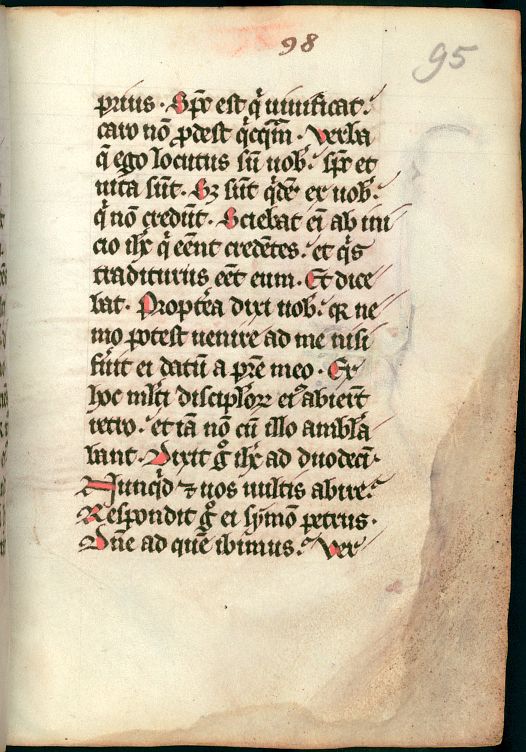 98
95
prius. Sp̄c est q̇ uiuificat.
caro nō ꝓdest q̇cq̄m. Verba
q̄ ego locutus sū uob᷒. sp̄c et
uita sūt. Sꝫ sūt qdē ex uob᷒.
q̇ nō credūt. Sciebat eī ab ini
cio ih̄c q̇ eēnt credētes. et q̇s
traditurus eēt eum. Et dice
bat. Propt̄ea dixi uob᷒. qꝛ ne
mo potest uenire ad me nisi
fūit ei datū a pr̄e meo. Ex
hoc ml̄ti discipl̄oꝝ eiꝰ abieūt
retro. et iā nō cū illo ambl̄a
bant. Dixit ḡ ih̄c ad duodecī.
Nunq̇d ⁊ uos uultis abire.
Respondit ḡ ei symō petrus.
Dn̄e ad quē ibimus. Ver